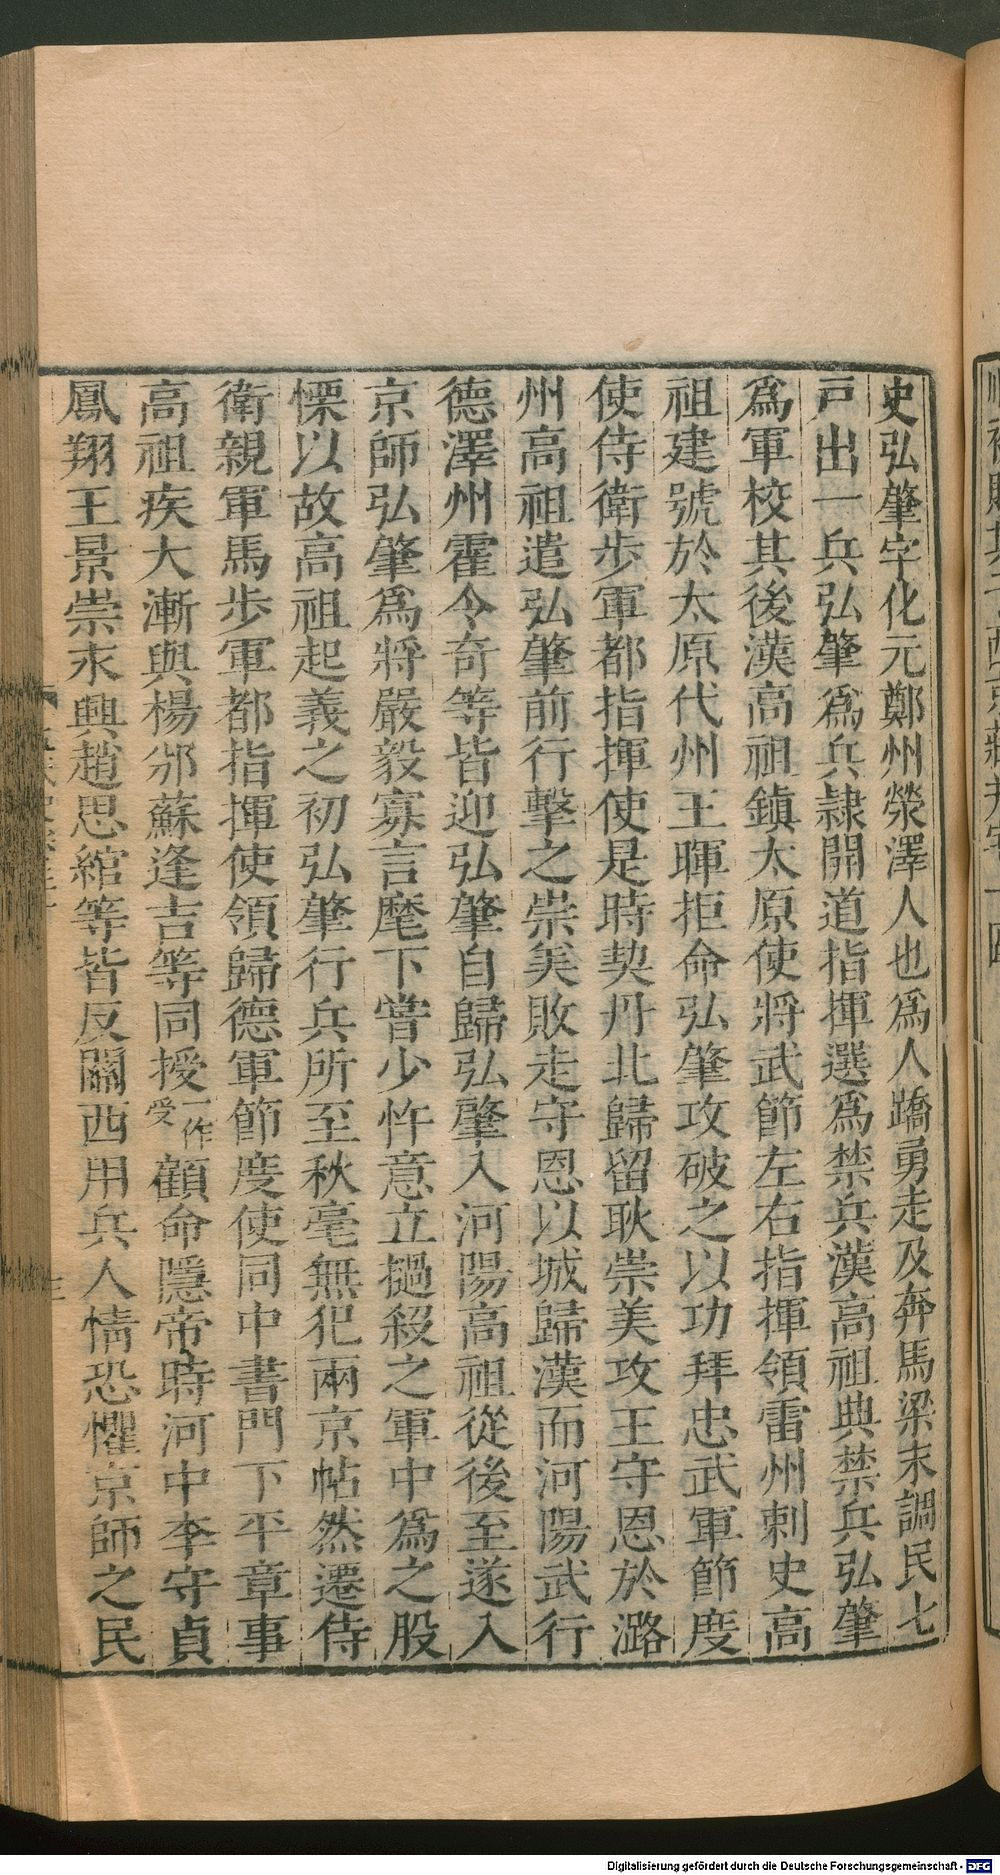 史弘肇字化元鄭州滎澤人也爲人蹻勇走及奔馬梁末調民七
戸出一兵弘肇爲兵隷開道指揮選爲禁兵漢高祖典禁兵弘肇
爲軍校其後漢高祖鎮太原使將武節左右指揮領雷州刺史高
祖建號於太原代州王暉拒命弘肇攻破之以功拜忠武軍節度
使侍衛步軍都指揮使是時契丹北歸留耿崇美攻王守恩於潞
州高祖遣弘肇前行擊之崇美敗走守恩以城歸漢而河陽武行
德澤州霍令奇等皆迎弘肇自歸弘肇入河陽高祖從後至遂入
京師弘肇爲將嚴毅寡言麾下嘗少忤意立撾殺之軍中爲之股
慄以故高祖起義之初弘肇行兵所至秋毫無犯兩京帖然遷侍
衛親軍馬步軍都指揮使領歸德軍節度使同中書門下平章事
高祖疾大漸與楊邠蘇逢吉等同授一作受顧命隱帝時河中李守貞
鳳翔王景崇永興趙思綰等皆反關西用兵人情恐懼京師之民
Digitalisierung gefördert durch die Deutsche Forschungsgemeinschaft - DFG